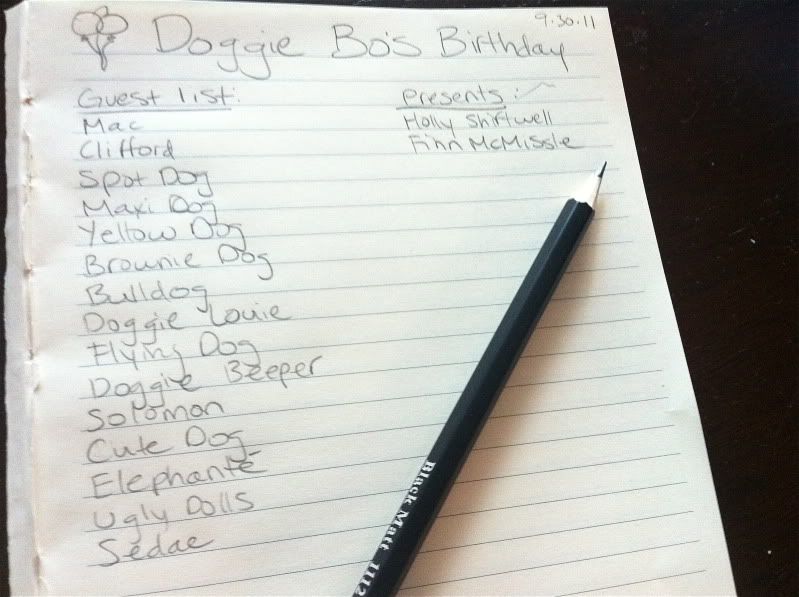 9.30.11
Doggie Bo's Birthday
Guest list:
Mac
Clifford
Spot Dog
Maxi Dog
Yellow Dog
Brownie Dog
Bulldog
Doggie Louie
Flying Dog
Doggie Beeper
Solomon
Cute Dog
Elephante
Ugly Dolls
Sedae
Presents:
Holly Shiftwell
Finn McMissle
Black Matt 1112